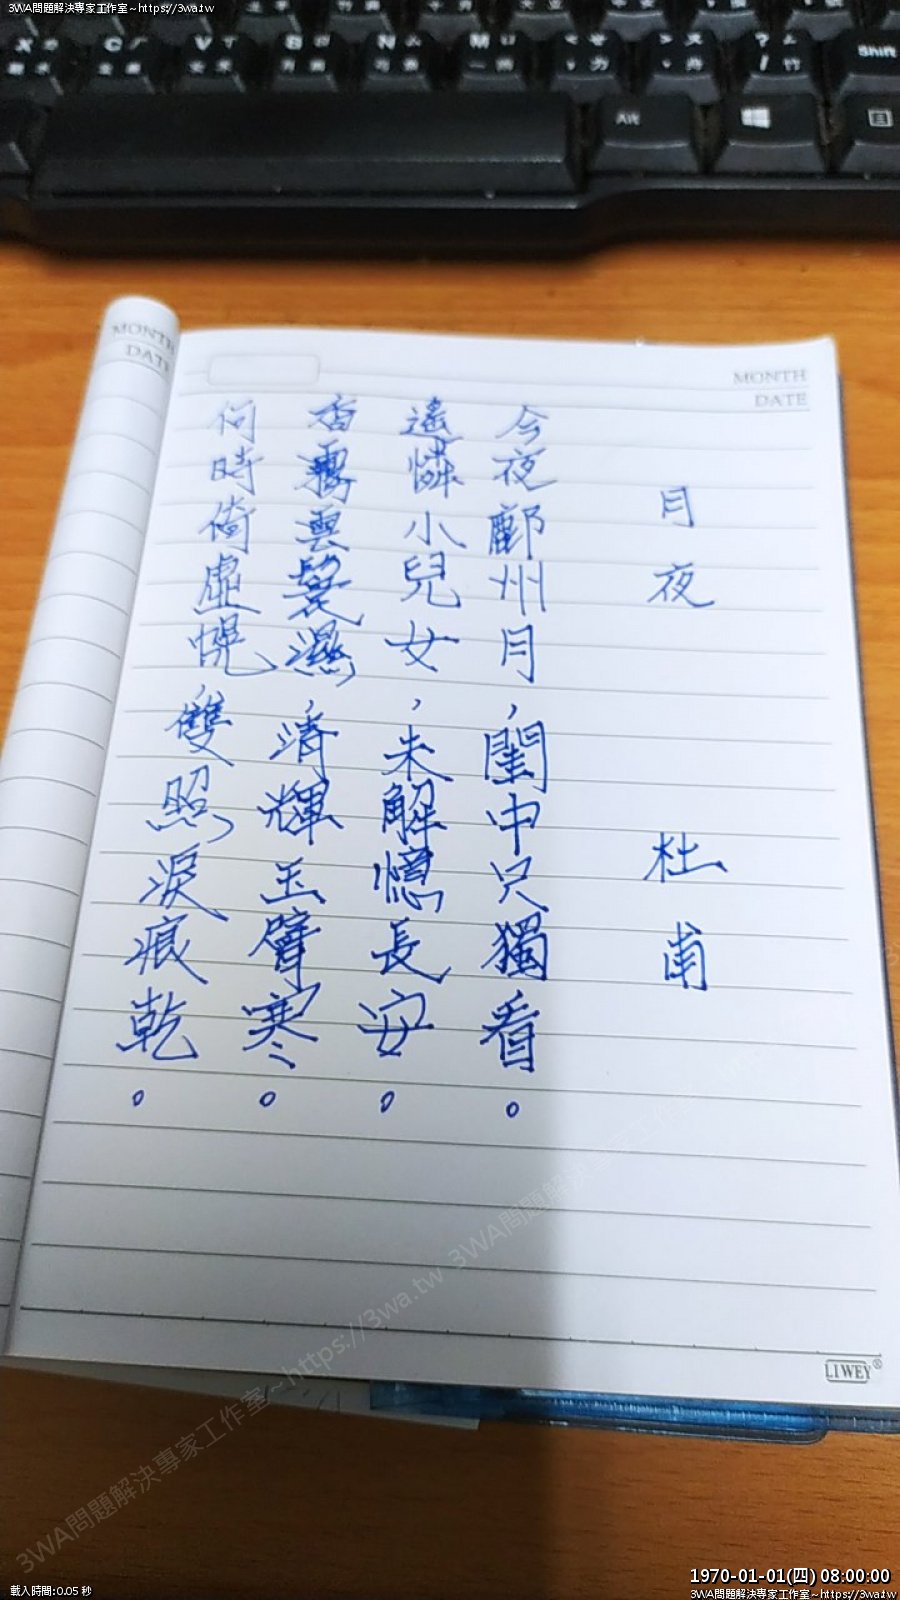 3WA問題解決專家工作室~https://3wa.tw
X
C
V
B
N
M
Shift
Alt
MONTH
DATE
MONTH
DATE
月夜 杜甫
今夜鄜州月，閨中只獨看。
遙憐小兒女，未解憶長安。
香霧雲鬟濕，清輝玉臂寒。
何時倚虛幌，雙照淚痕乾。
3WA問題解決專家工作室~https://3wa.tw 3WA問題解決專家工作室~
LIWEY®
載入時間:0.05 秒
1970-01-01(四) 08:00:00
3WA問題解決專家工作室~https://3wa.tw